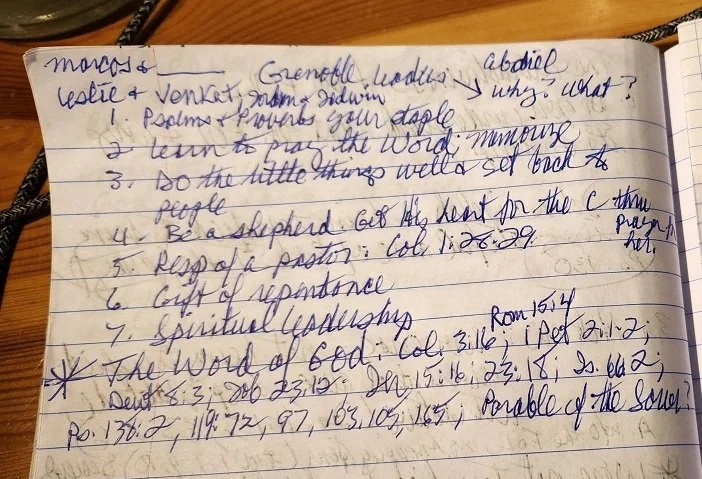 Marcos & ______ Grenoble leaders → Abdiel
Leslie & Venkat, Jordan & Why? What?
1. Psalms & Proverbs your staple
2. Learn to pray the Word; memorize
3. Do the little things well & get back to
people
4. Be a shepherd. Get His heart for the C thru
prayer
5. Resp of a pastor: Col. 1:28-29.
6. Gift of repentance
7. Spiritual leadership
Rom 15:4
* The Word of God: Col. 3:16; 1 Pet 2:1-2;
Deut 8:3; Job 23:12; Jn 15:16; 23:18; Is. 66:2;
Ps. 138:2, 119:72, 97, 103, 105, 165; Parable of the Sower?